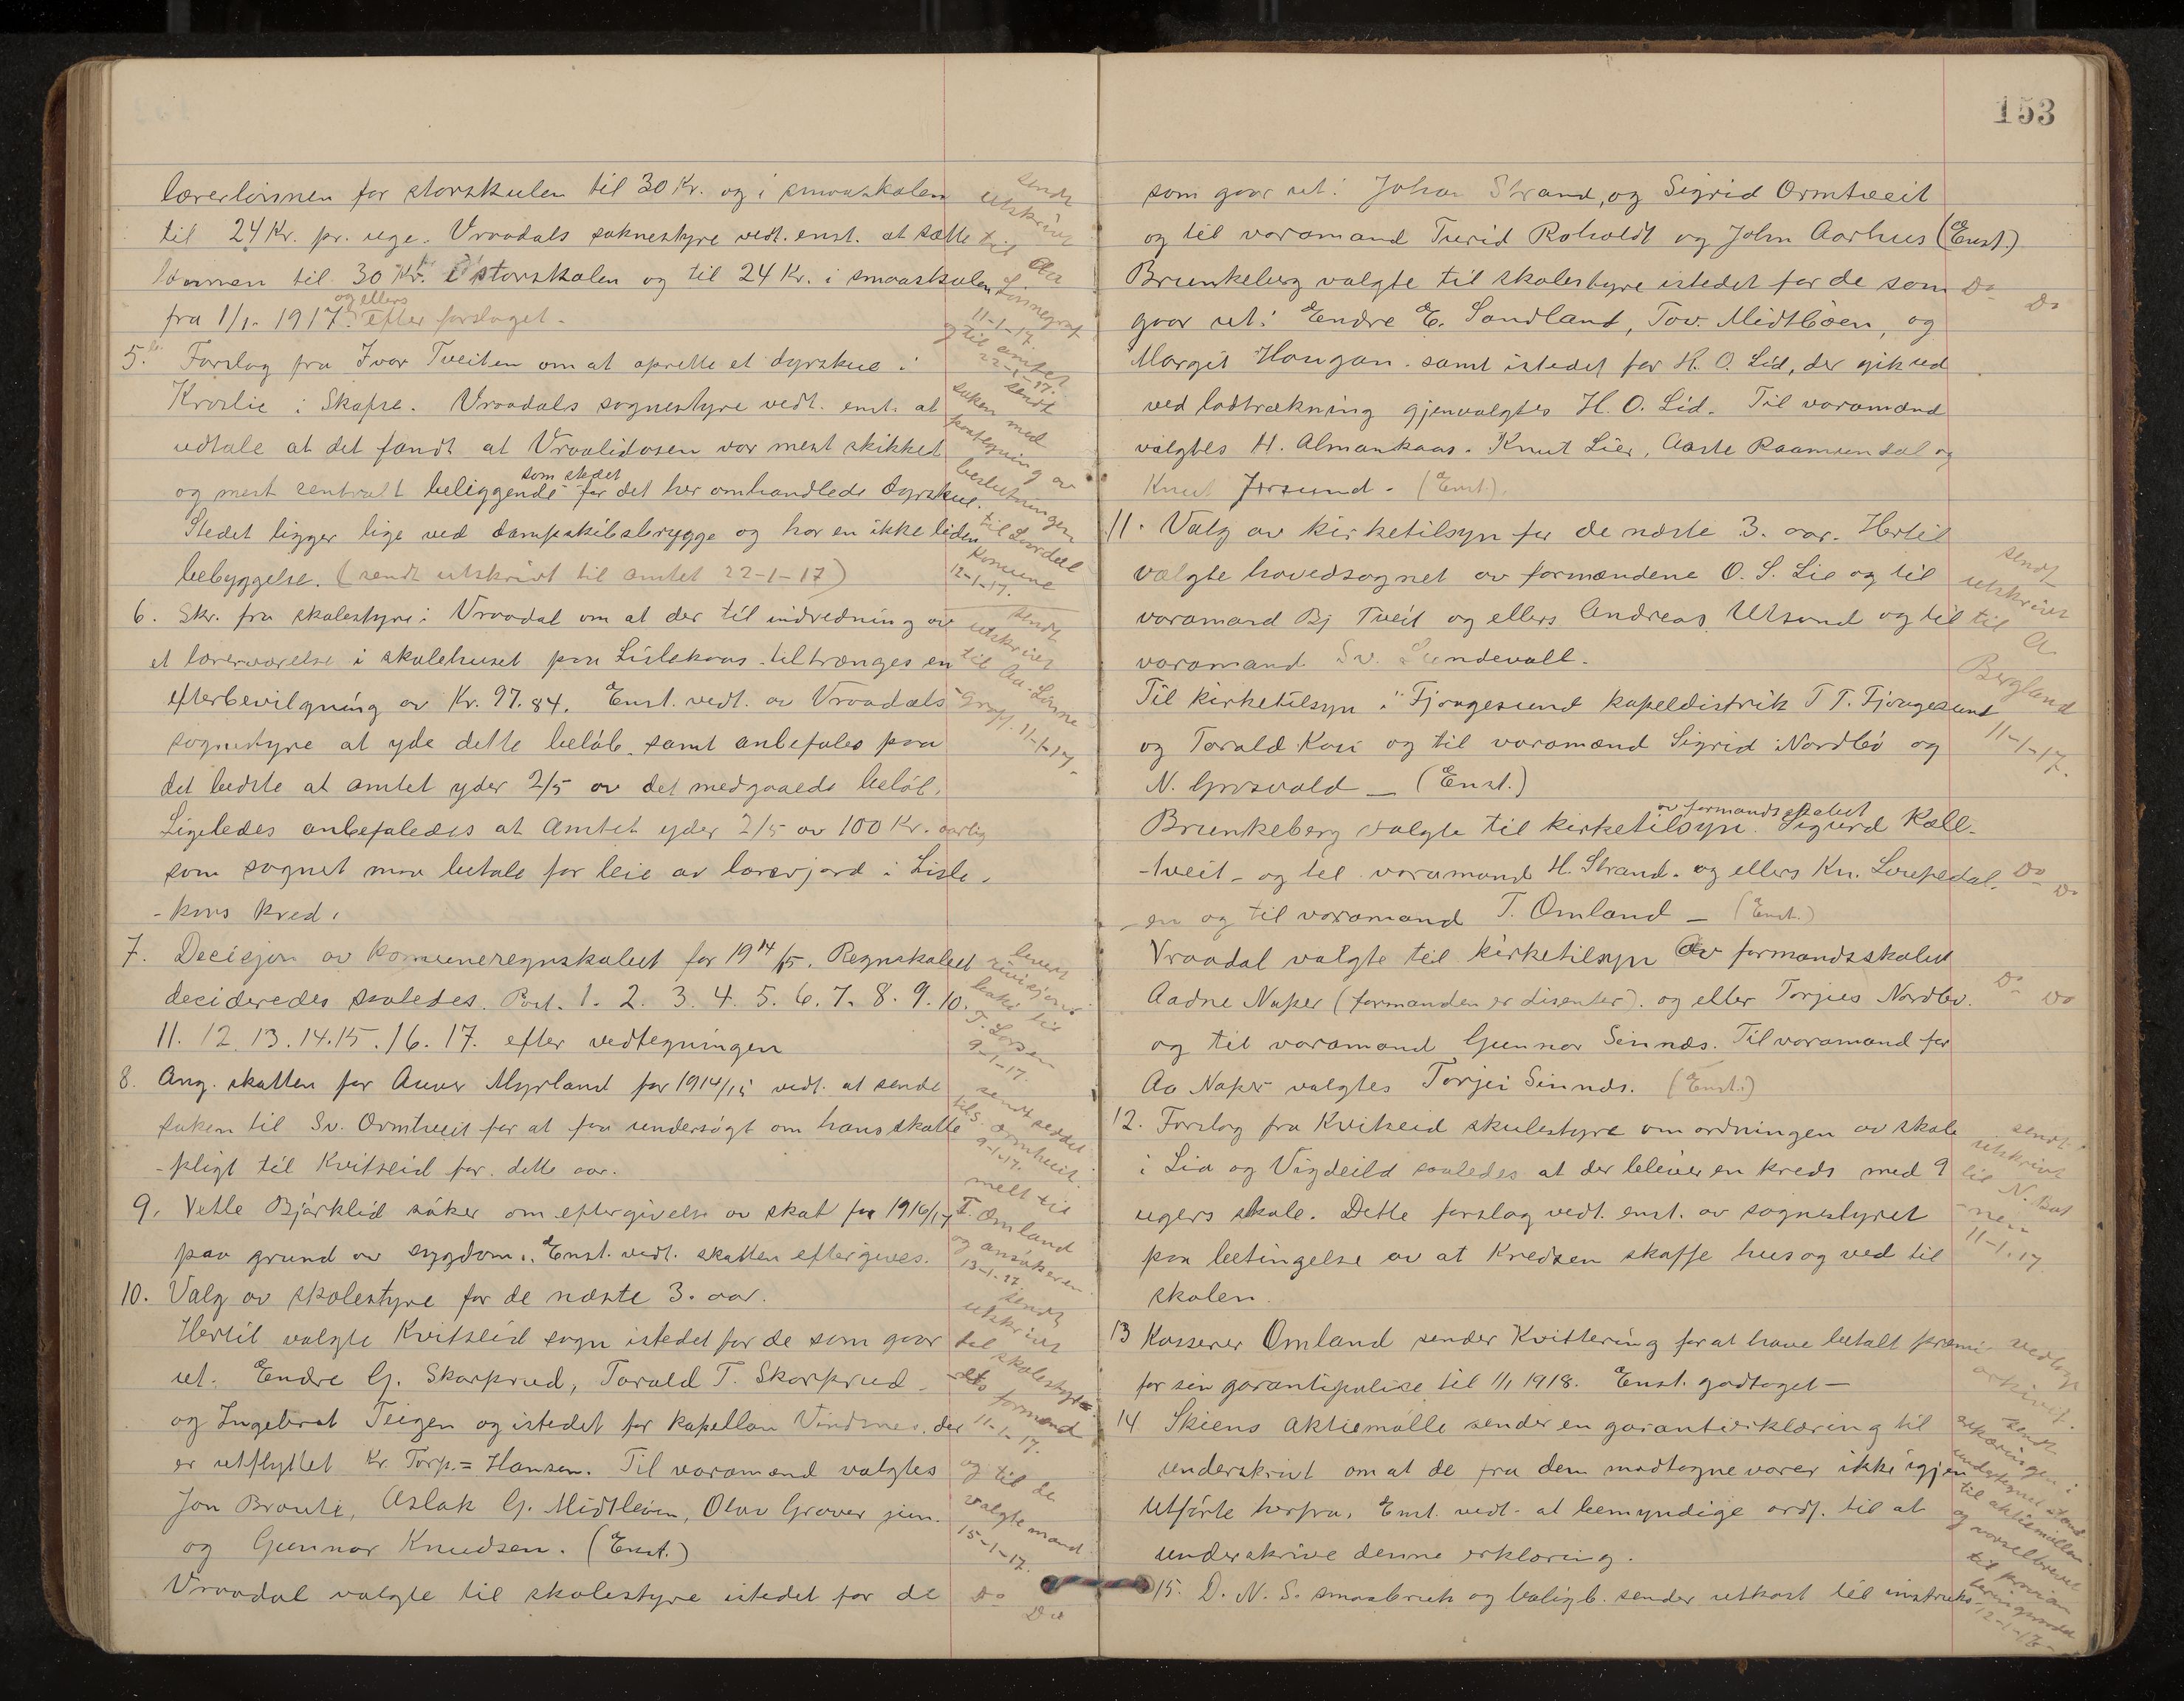 lærerlönnen for storskulen til 30 Kr. og i smaaskolen
til 24 Kr. pr. uge. Vraadals soknestyre vedt. enst. at sætte
lönnen til 30 Kr. i storskolen og til 24 Kr. i smaaskolen
fra 1/1- 1917. og ellers efter forslaget.
sendt
utskrivt
til Aa
Linnegraf
11-1-17.
og til amtet
22-1-17.
5. Forslag fra Ivar Tveiten om at oprette et dyrskue i
Kroslie i Skafse. Vraadals sognestyre vedt. enst. at
udtale at det fandt at Vraaliosen var mest skikket
og mest sentralt beliggende som stedet for det her omhandlede dyrskue.
Stedet ligger lige ved dampskibsbrygge og har en ikke liden
bebyggelse. (sendt utskrivt til amtet 22-1-17)
sendt
saken med
paategning av
beslutningen
til Lardal
komune
12-1-17.
6. Skr. fra skolestyre i Vraadal om at der til indredning av
et lærerværelse i skolehuset paa Lislekaas tiltrænges en
efterbevilgning av Kr. 97.84. Enst. vedt. av Vraadals
sognestyre at yde dette belöb, samt anbefales paa
det bedste at amtet yder 2/5 av det medgaaede belöb.
Ligeledes anbefaledes at Amtet yder 2/5 av 100 Kr. aarlig
som sognet maa betale for leie av lærerjord i Lisle-
-kaas kred.
sendt
utskrivt
til Aa. Linne
-graf. 11-1-17.
7. Decisjon av Komuneregnskabet for 1914/15. Regnskabet
decideredes saaledes. Post. 1. 2. 3. 4. 5. 6. 7. 8. 9. 10.
11. 12. 13. 14. 15. 16. 17. efter vedtegningen
9-1-17.
8. Ang. skatten for Anver Myrland for 1914/15 vedt. at sende
saken til Sv. Ormtveit for at faa undersögt om hans skatte
-pligt til Kvitseid for dette aar.
9-1-17.
9. Vetle Bjårklid söker om eftergivelse av skat for 1916/17
paa grund av sygdom. Enst. vedt. skatten eftergives.
melt til
T. Omland
og ansökeren
13-1-17.
10. Valg av skolestyre for de næste 3. aar.
Hertil valgte Kvitseid sogn istedet for de som gaar
ut. Endre G. Skarprud, Torald T. Skarprud
og Ingebret Teigen og istedet for kapellan Vindsnes, der
er utflyttet Kr. Torp.= Hansen. Til varamænd valgtes
Jon Brauti, Aslak G. Midtböen, Olav Graver jun.
og Gunnar Knudsen. (Enst.)
Vraadal valgte til skolestyre istedet for de
sendt
utskrivt
til skolestyre=
-ets formand
11-1-17.
og til de
valgte mænd
15-1-17.
Do Do
153
som gaar ut: Johan Strand, og Sigrid Ormtveit
og til varamænd Turid Roholdt og John Aarhus (Enst.)
Brunkeberg valgte til skolestyre istedet for de som
gaar ut: Endre E. Sandland, Tov. Midtböen, og
Margit Haugan. samt istedet for H. O. Lid, der gik ud
ved lodtrækning gjenvalgtes H. O. Lid. Til varamænd
valgtes H. Almankaas. Knut Lier, Aaste Raamundal og
Knut Jorsund. (Enst.).
Do Do
11. Valg av kirketilsyn for de næste 3. aar. Hertil
valgte hovedsognet av formændene O. S. Lie og til
varamand Bj Tveit og ellers Andreas Utsund og til
varamand Sv. Lundevall.
Til kirketilsyn i Fjaagesund kapeldistrik T T. Fjaagesund
og Torald Kasi og til varamænd Sigrid Nordbö og
N. Grosvald — (Enst.)
sendt
utskrivt
til A.
Bergland
11-1-17.
Brunkeberg valgte til kirketilsyn. av formandsskabet Sigurd Kall-
-tveit - og til varamand H. Strand. og ellers Kn. Loupedal.
-en og til varamand T. Omland — (Enst.)
Do Do
Vraadal valgte til kirketilsyn Av formandsskabet
Aadne Naper (formanden er disenter). og eller Torjus Nordbö.
og til varamand Gunnar Sinnæs. Til varamand for
Aa Naper valgtes Torjei Sinnæs. (Enst.)
Do Do
12. Forslag fra Kvitseid skulestyre om ordningen av skole
i Lia og Vigdeild saaledes at der bleiver en kreds med 9
ugers skole. Dette forslag vedt. enst. av sognestyret
paa betingelse av at Kredsen skaffe hus og ved til
skolen.
sendt
utskrivt
til N. Bat
-nen
11-1-17
13 Kasserer Omland sender Kvittering for at have betalt præmi
for sin garantipolise til 1/1 1918. Enst. godtaget —
vedlagt
arkivet.
14. Skiens Aktiemölle sender en garantierklæring til
underskrivt om at de fra dem modtagne varer ikke igjen
utförte herfra. Enst. vedt. at bemyndige ordf. til at
underskrive denne erklæring.
sendt
erklæringen i
undertegnet stand
til aktiemöllen
12-1-17-
15. D. N. S. smaabruk og boligb. sender utkast til instruks-